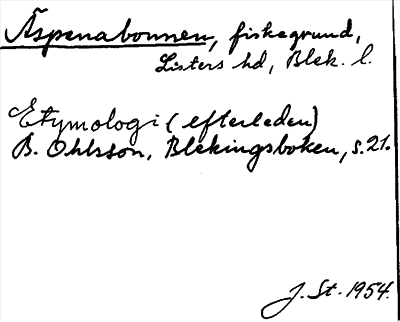 Äspenabonnen, fiskegrund,
Listers hd, Blek. l.
Etymologi (efterleden)
B. Ohlsson, Blekingsboken, s. 21.
J. St. 1954.